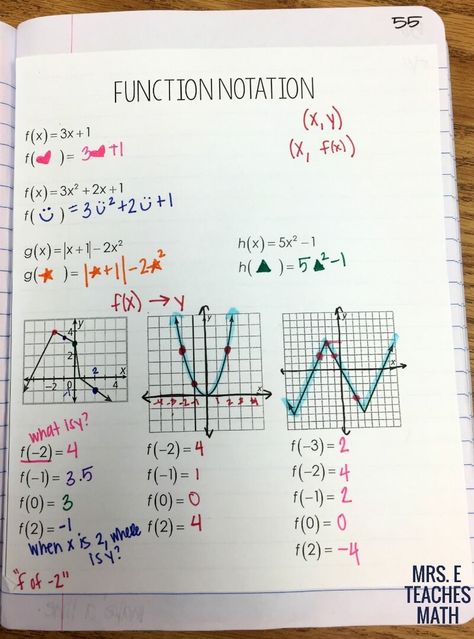 55
FUNCTION NOTATION
f(x) = 3x + 1
f(♥) = 3♥+1
(x, y)
(x, f(x))
f(x) = 3x² + 2x + 1
f(☺) = 3☺²+2☺+1
g(x) = |x + 1| − 2x²
g(★) = |★+1|−2★²
h(x) = 5x² − 1
h(▲) = 5▲²−1
f(x) → y
y
4
2
−2
0
2
4
x
-1
y
x
-4 -3 -2 -1 1 2 3 4
y
x
what is y?
f(−2) = 4
f(−1) = 3.5
f(0) = 3
f(2) = -1
when x is 2, where
is y?
"f of -2"
f(−2) = 4
f(−1) = 1
f(0) = 0
f(2) = 4
f(−3) = 2
f(−2) = 4
f(−1) = 2
f(0) = 0
f(2) = -4
MRS. E
TEACHES
MATH